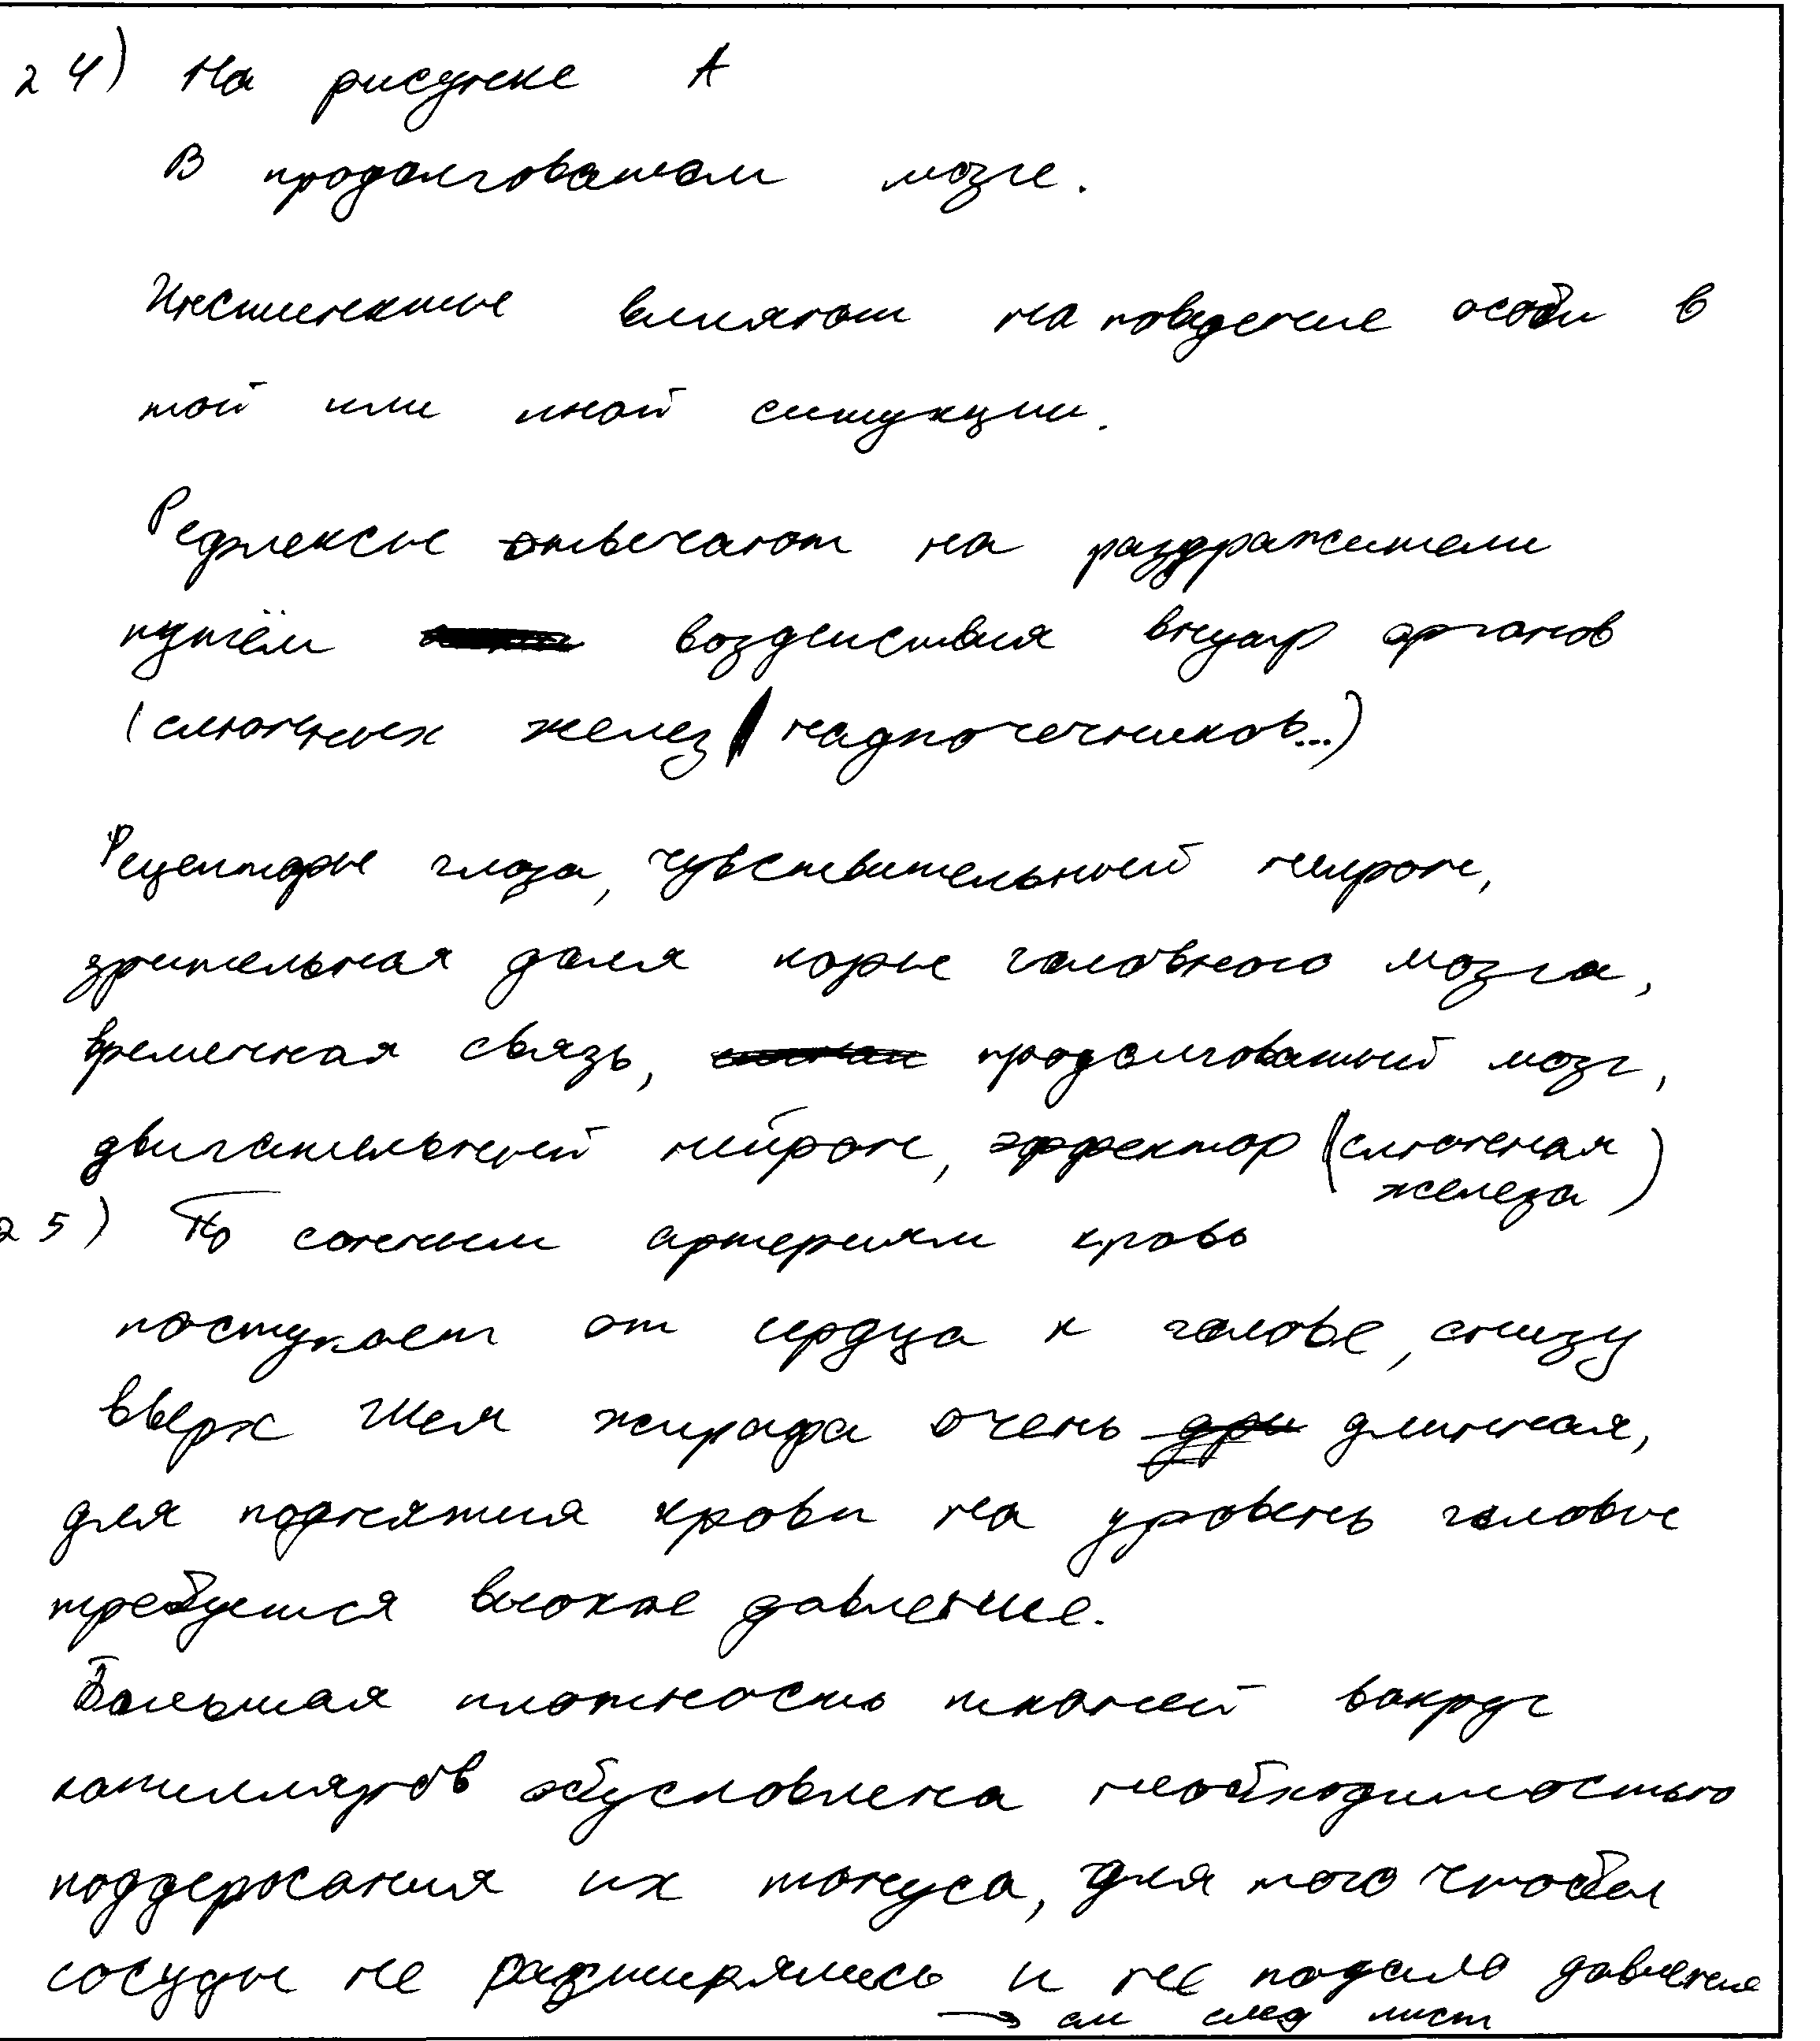 24) На рисунке А
В продолговатом мозге.
Инстинкты влияют на поведение особи в
той или иной ситуации.
Рефлексы отвечают на раздражители
путём воздействия внутр органов
(слюнных желез, надпочечников...)
Рецепторы глаза, чувствительный нейрон,
зрительная доля коры головного мозга,
временная связь, продолговатый мозг,
двигательный нейрон, эффектор (слюнная
железа)
25) По сонным артериям кровь
поступает от сердца к голове, снизу
вверх Шея жирафа очень длинная,
для поднятия крови на уровень головы
требуется высокое давление.
Большая плотность тканей вокруг
капилляров обусловлена необходимостью
поддержания их тонуса, для того чтобы
сосуды не расширялись и не подало давление
→ см след лист